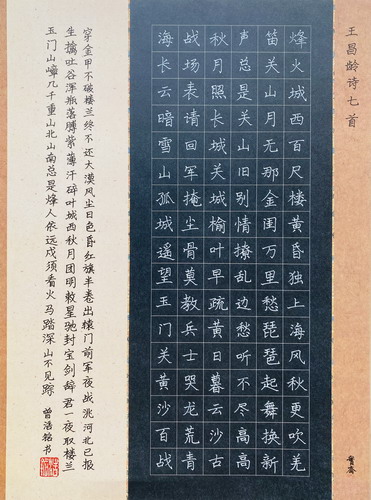 王昌龄诗七首
烽火城西百尺楼黄昏独上海风秋更吹羌
笛关山月无那金闺万里愁琵琶起舞换新
声总是关山旧别情撩乱边愁听不尽高高
秋月照长城关城榆叶早疏黄日暮云沙古
战场表请回军掩尘骨莫教兵士哭龙荒青
海长云暗雪山孤城遥望玉门关黄沙百战
穿金甲不破楼兰终不还大漠风尘日色昏红旗半卷出辕门前军夜战洮河北已报
生擒吐谷浑瓶落膊紫薄汗碎叶城西秋月团明敕星驰封宝剑辞君一夜取楼兰
玉门山嶂几千重山北山南总是烽人依远戍须看火马踏深山不见踪
曾浩铭书